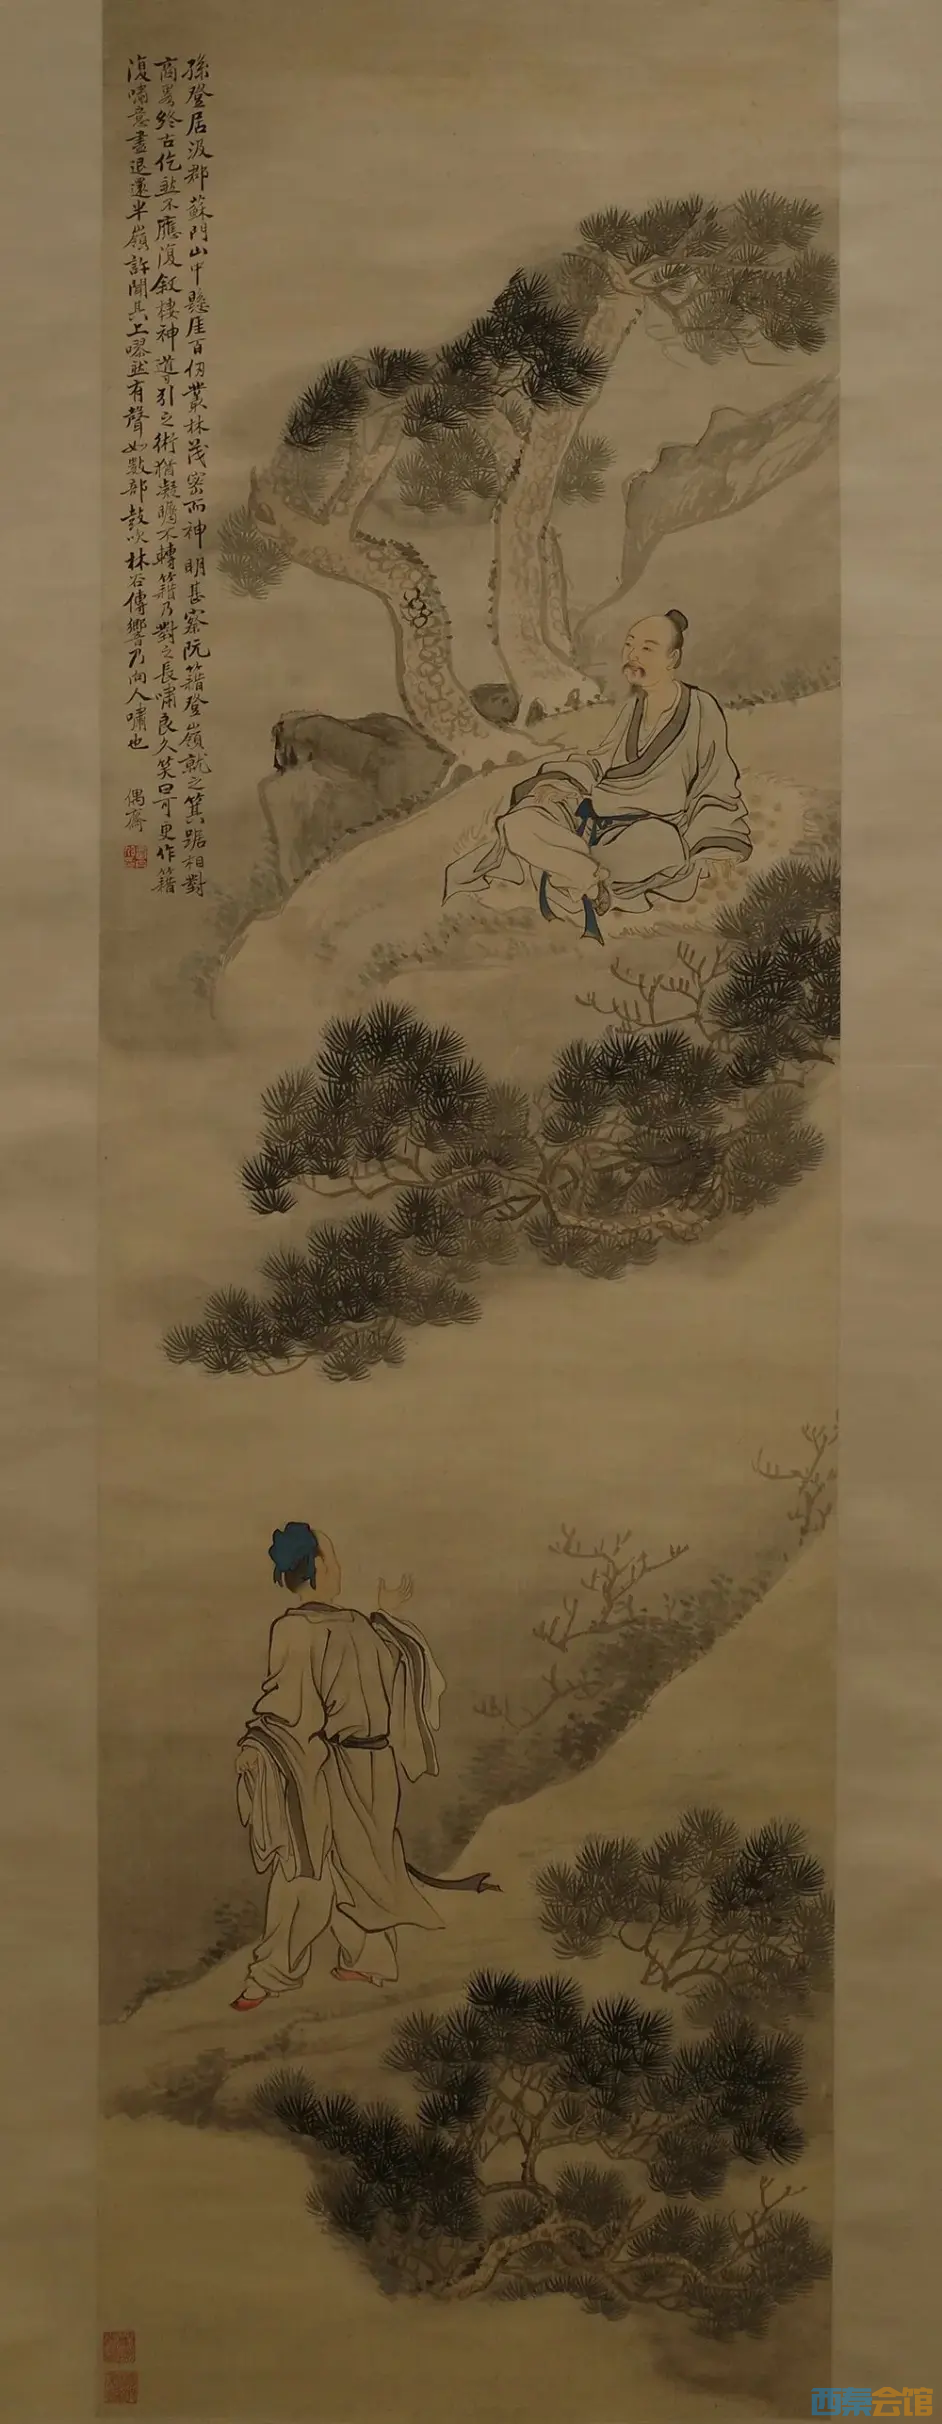 孫登居汲郡蘇門山中懸崖百仞叢林茂密而神明甚察阮籍登嶺就之箕踞相對
商畧終古仡然不應復敘棲神導引之術猶凝矚不轉籍乃對之長嘯良久笑曰可更作籍
復嘯意盡退還半嶺許聞其上㗲然有聲如數部鼓吹林谷傳響乃向人嘯也
偶齋
西泰会馆